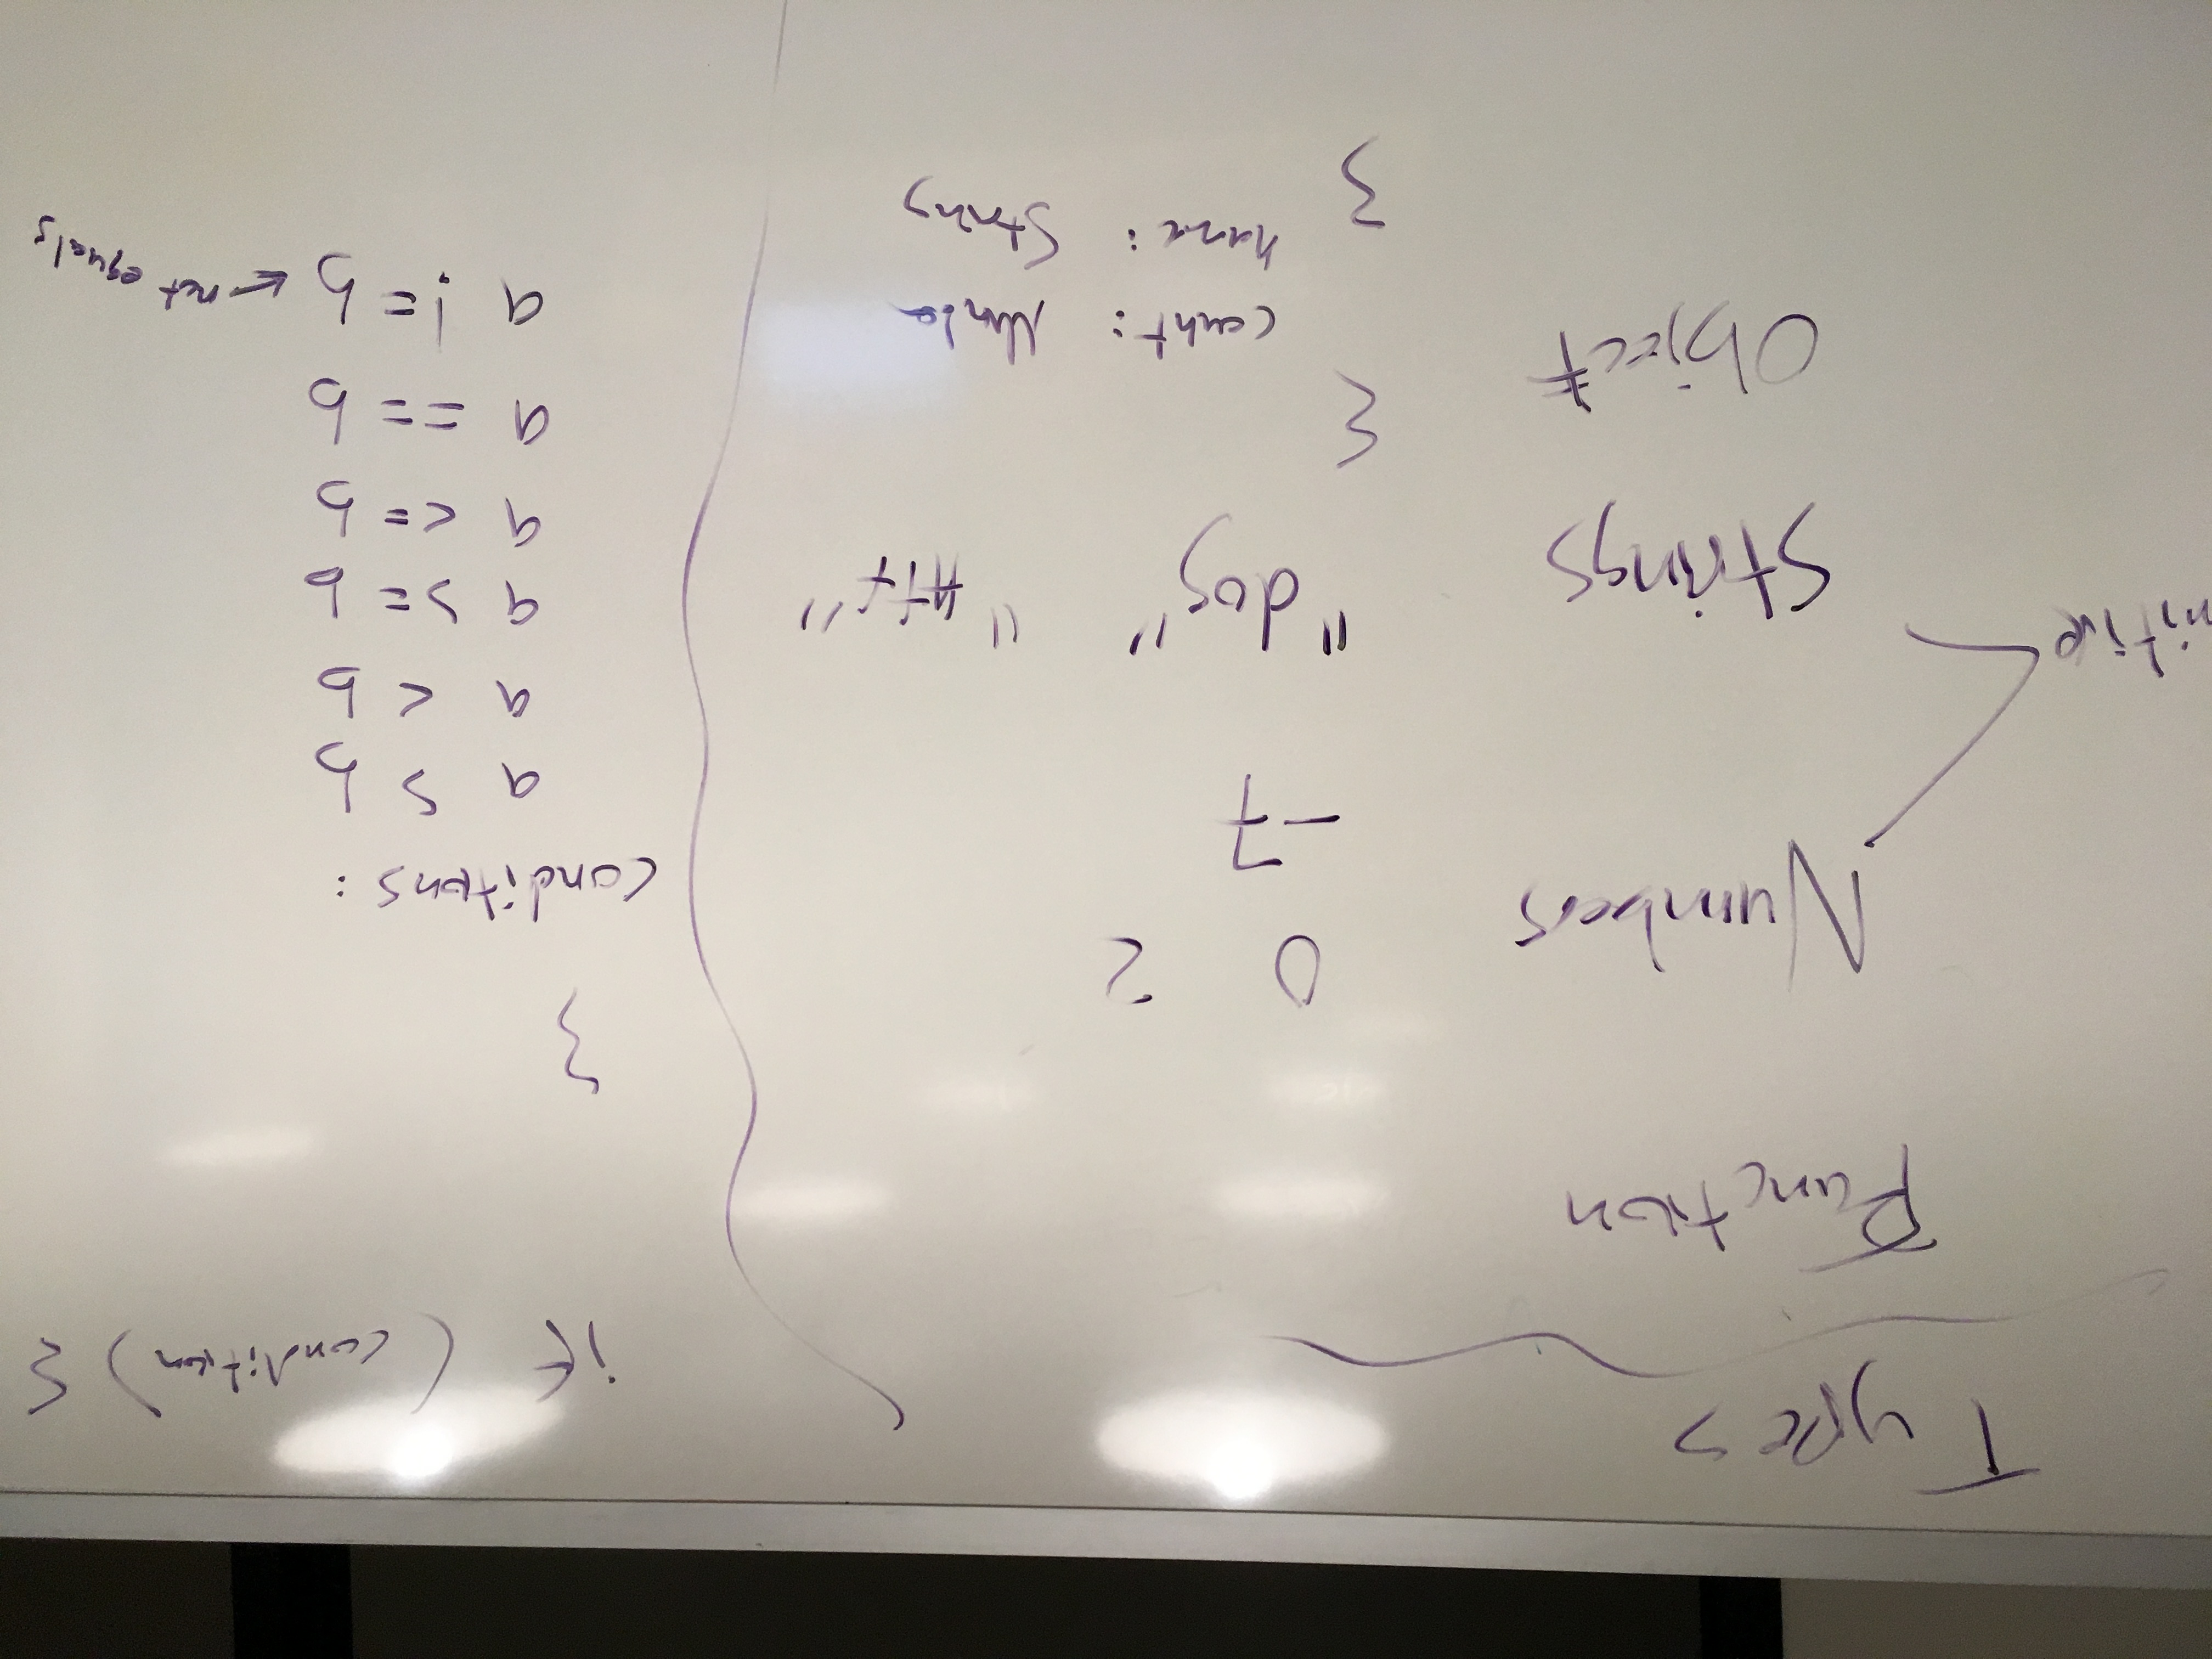 Types
Function
Numbers 0 2
-7
mitive
Strings "dog" "#ff"
Object {
count: Number
name: String
}
if (condition) {
}
conditions:
a > b
a < b
a >= b
a <= b
a == b
a != b ← not equals